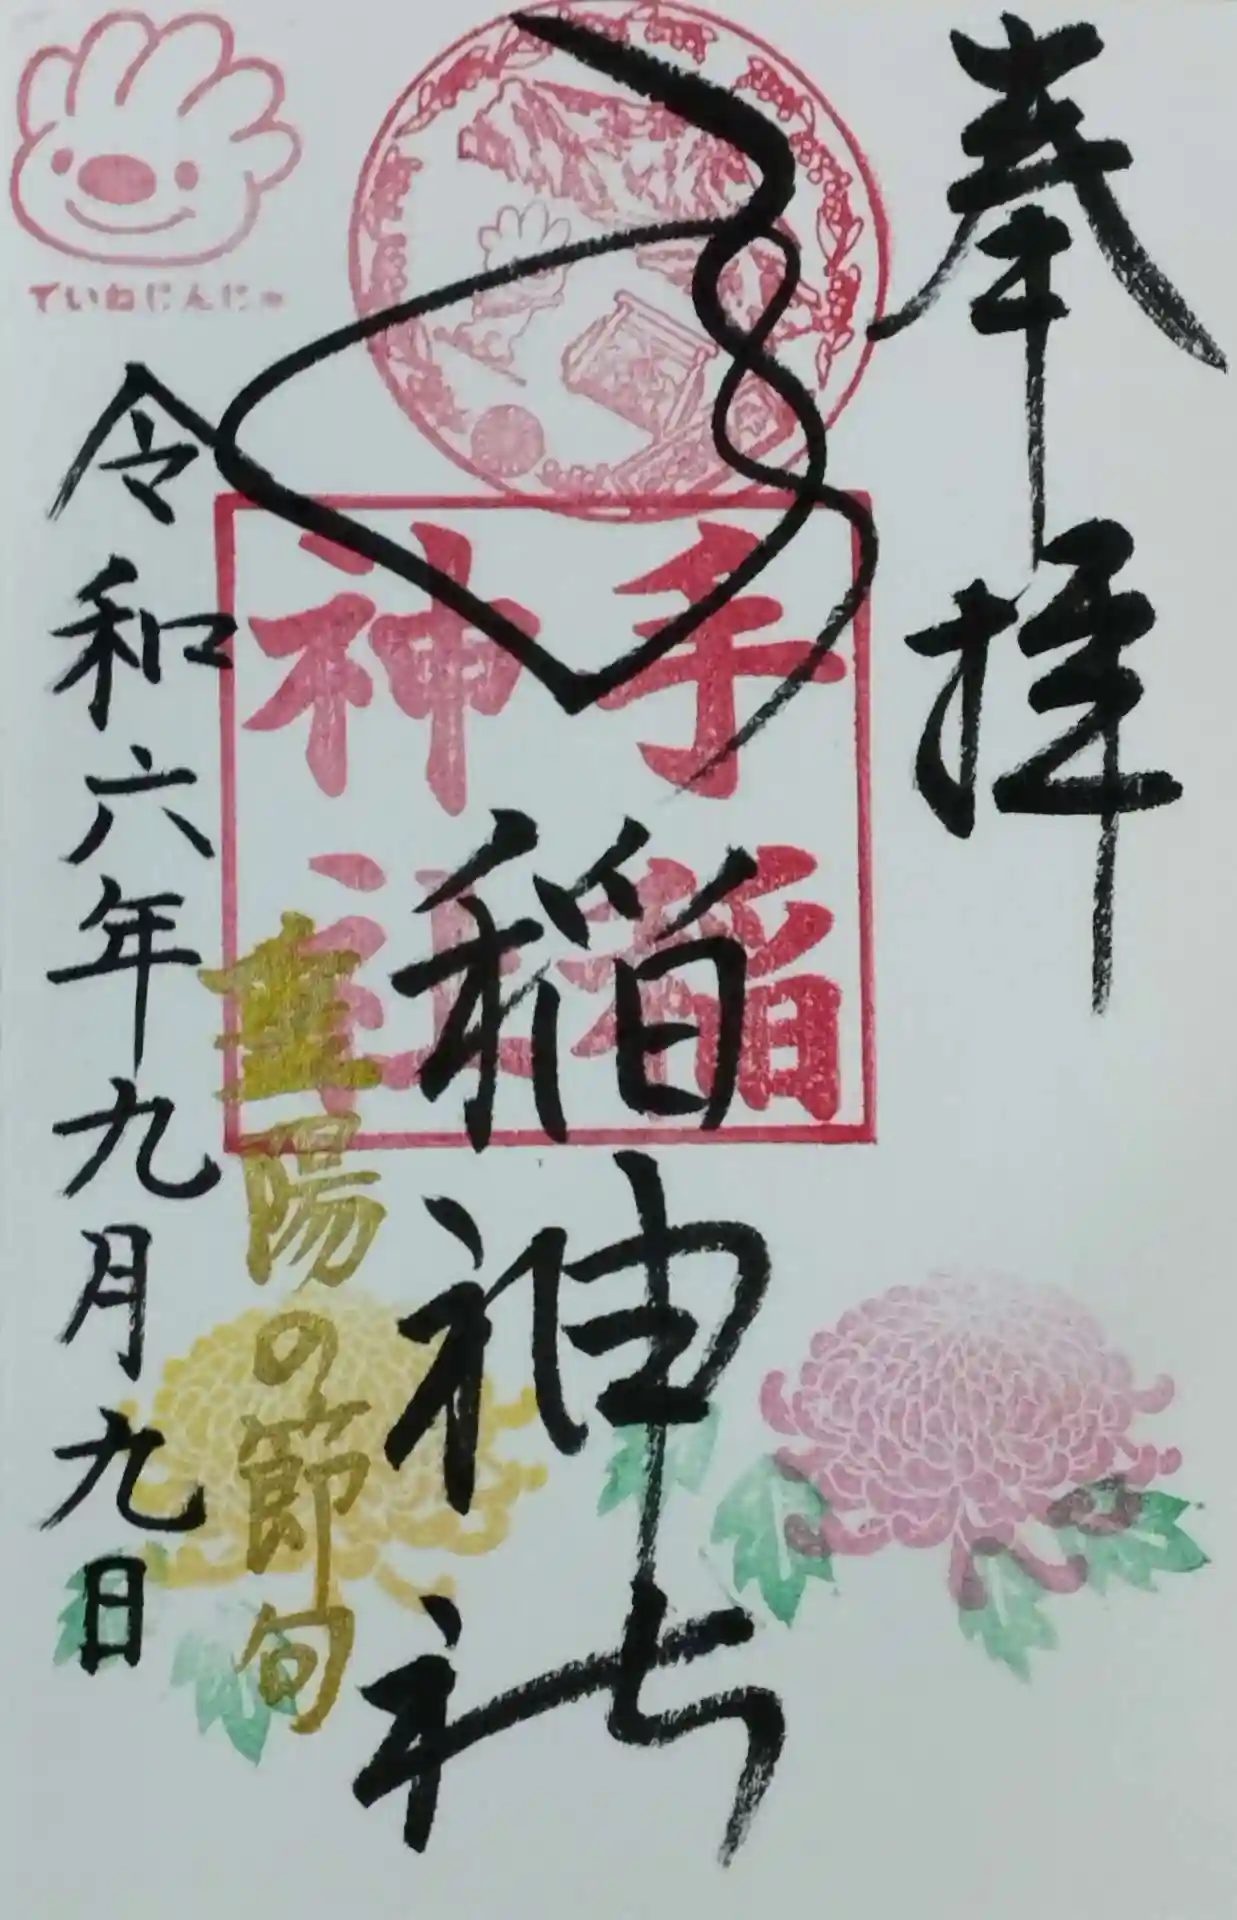 奉拝
手稲
神社
手稲神社
重陽の節句
令和六年九月九日
ていねじんにゃ